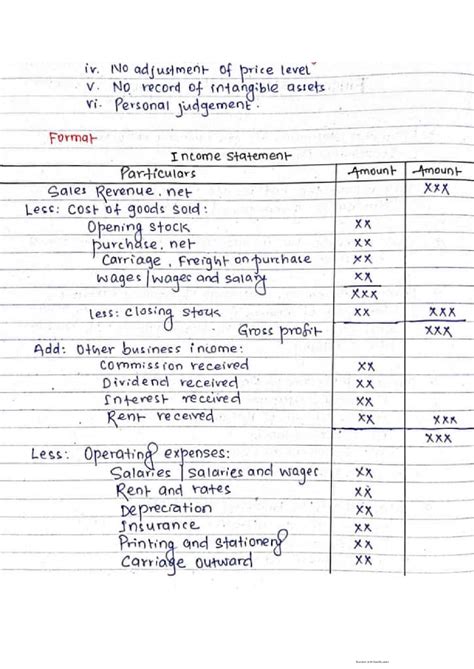 iv. No adjustment of price level
v. No record of intangible assets
vi. Personal judgement.
Format
Income Statement
Particulars Amount Amount
Sales Revenue, net xxx
Less: Cost of goods sold:
Opening stock xx
purchase, net xx
Carriage, Freight on purchase xx
wages/wages and salary xx
xxx
less: closing stock xx xxx
Gross profit xxx
Add: Other business income:
Commission received xx
Dividend received xx
Interest received xx
Rent received xx xxx
xxx
Less: Operating expenses:
Salaries/salaries and wages xx
Rent and rates xx
Depreciation xx
Insurance xx
Printing and stationery xx
Carriage outward xx